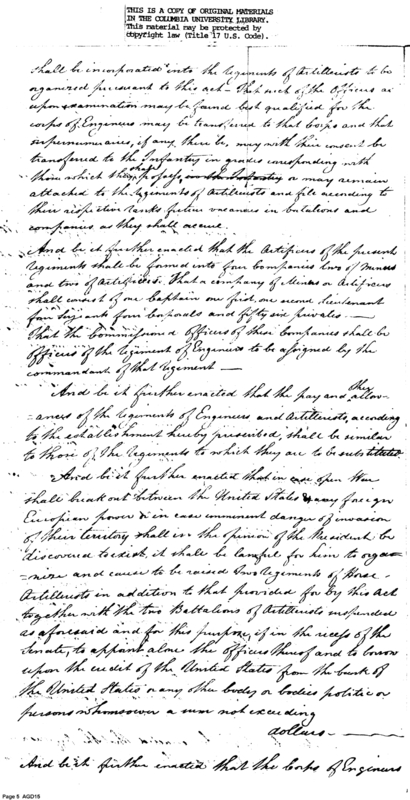 THIS IS A COPY OF ORIGINAL MATERIALS
IN THE COLUMBIA UNIVERSITY LIBRARY.
This material may be protected by
copyright law (Title 17 U.S. Code).
shall be incorporated into the Regiments of Artillerists to be
organized pursuant to this act— That such of the Officers as
upon examination may be found best qualified for the
corps of Engineers may be transfered to that Corps and that
supernumeraries, if any there be, may with their consent be
transfered to the Infantry in grades coresponding with
those which they shall possess, in the Infantry or may remain
attached to the Regiments of Artillerists and file according to
their respective ranks future vacancies in batalions and
companies as they shall accrue.
And be it further enacted that the Artificers of the present
Regiments shall be formed into four Companies two of Miners
and two of Artificers. That a company of Miners or Artificers
shall consist of one Captain one first, one second lieutenant
four Sergeants four Corporals and fifty six privates—
That the Commissioned Officers of these Companies shall be
Officers of the Regiment of Engineers to be assigned by the
commandant of that Regiment—
And be it further enacted that the pay and the allow-
=ances of the Regiments of Engineers and Artillerists, according
to the establishment hereby prescribed, shall be similar
to those of the Regiments to which they are to be substituted
And be it further enacted that in case open War
shall break out between the United States & any foreign
European power or in case imminent danger of invasion
of their territory shall in the opinion of the President be
discovered to exist, it shall be lawful for him to orga=
=nize and cause to be raised two Regiments of Horse
Artillerists in addition to that provided for by this Act
together with the two Battalions of Artillerists suspended
as aforesaid and for this purpose, if in the recess of the
Senate, to appoint alone the Officers thereof and to borrow
upon the credit of the United States from the bank of
the United States or any other body or bodies politic or
persons whomsoever a sum not exceeding
dollars—
And be it further enacted that the Corps of Engineers
Page 5 AGD15